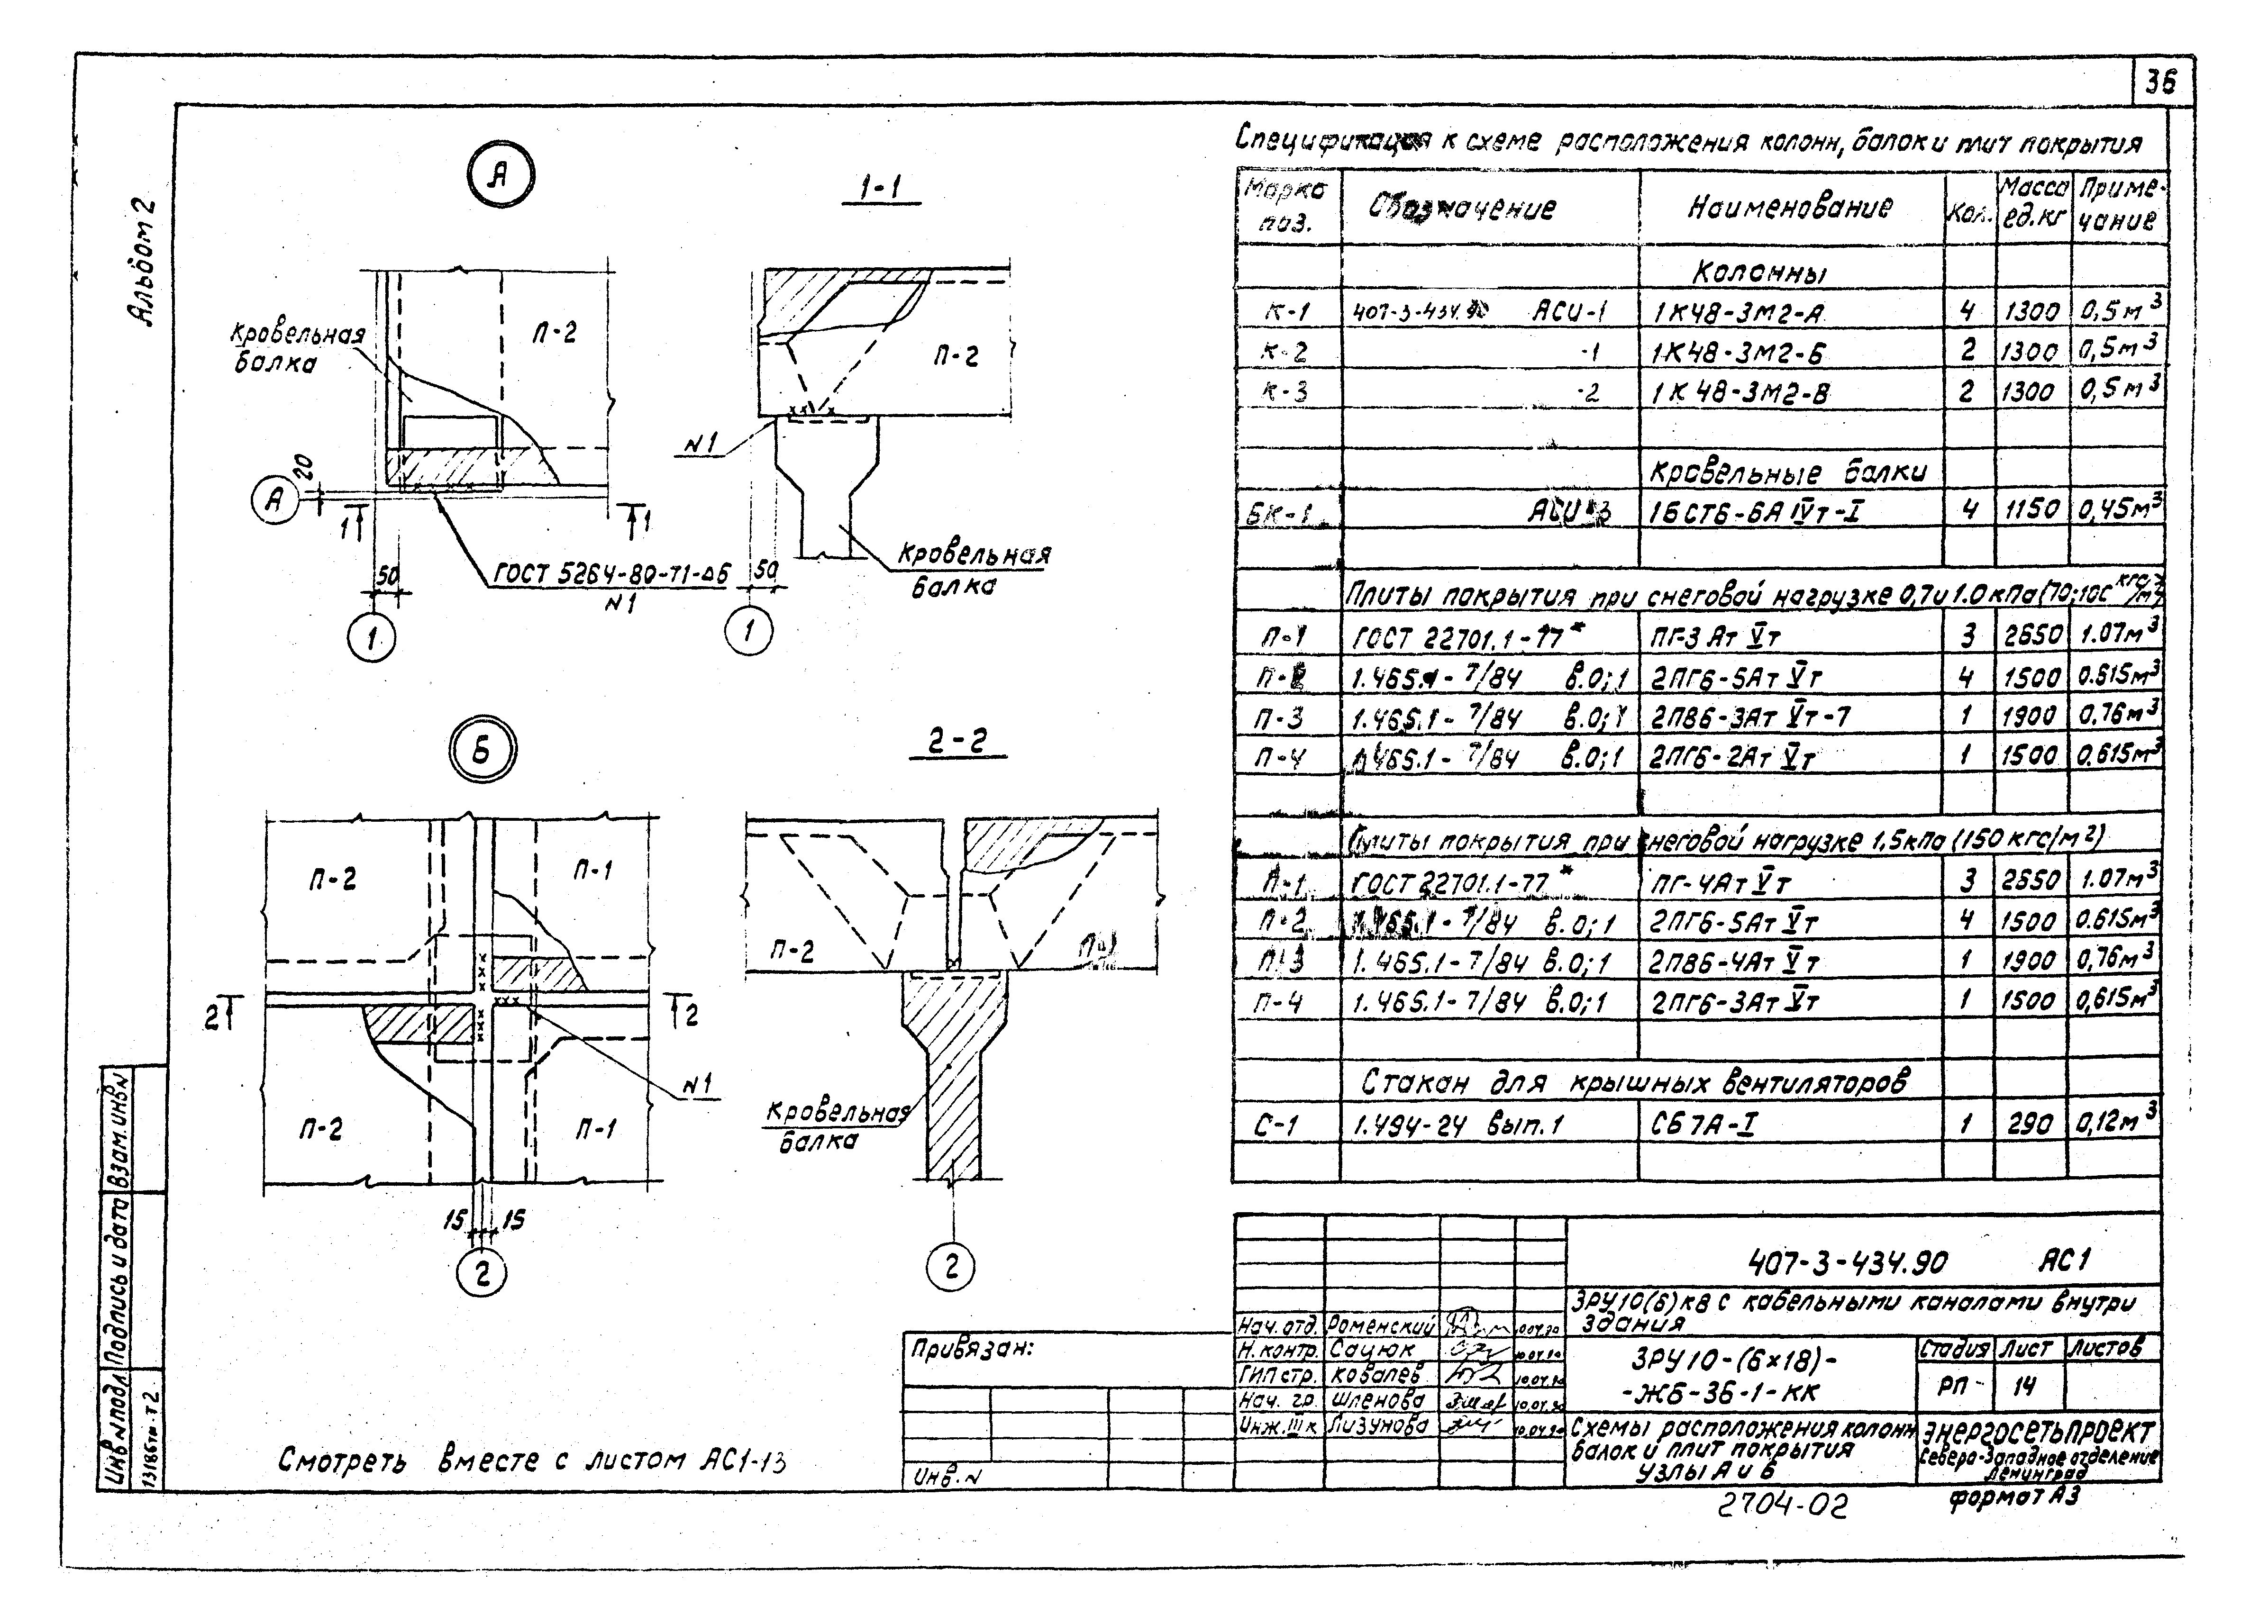 36
Альбом 2
А
1-1
Кровельная
балка
П-2
20
А
1
1
50
ГОСТ 5264-80-Т1-Δ6
N1
1
П-2
N1
Кровельная
балка
50
1
Б
2-2
П-2
П-1
2
2
П-2
П-1
N1
15
15
2
П-2
Кровельная
балка
2
Смотреть вместе с листом АС1-13
Спецификация к схеме расположения колонн, балок и плит покрытия
Марка поз. Обозначение Наименование Кол. Масса ед.кг Примечание
Колонны
К-1 407-3-434.90 АСИ-1 1К48-3М2-А 4 1300 0,5м³
К-2 -1 1К48-3М2-Б 2 1300 0,5м³
К-3 -2 1К48-3М2-В 2 1300 0,5м³
Кровельные балки
БК-1 АСИ-3 1БСТ6-6А IVт-I 4 1150 0,45м³
Плиты покрытия при снеговой нагрузке 0,7и1.0кПа(70;100 кгс/м²)
П-1 ГОСТ 22701.1-77* ПГ-3 Ат Vт 3 2650 1.07м³
П-2 1.465.1-7/84 в.0;1 2ПГ6-5Ат Vт 4 1500 0.615м³
П-3 1.465.1-7/84 в.0;1 2ПВ6-3Ат Vт-7 1 1900 0,76м³
П-4 1.465.1-7/84 в.0;1 2ПГ6-2Ат Vт 1 1500 0.615м³
Плиты покрытия при снеговой нагрузке 1,5кПа (150 кгс/м²)
П-1 ГОСТ 22701.1-77* ПГ-4Ат Vт 3 2650 1.07м³
П-2 1.465.1-7/84 в.0;1 2ПГ6-5Ат Vт 4 1500 0.615м³
П-3 1.465.1-7/84 в.0;1 2ПВ6-4Ат Vт 1 1900 0,76м³
П-4 1.465.1-7/84 в.0;1 2ПГ6-3Ат Vт 1 1500 0,615м³
Стакан для крышных вентиляторов
С-1 1.494-24 вып.1 СБ 7А-I 1 290 0,12м³
407-3-434.90 АС1
ЗРУ10(6)кВ с кабельными каналами внутри
здания
Нач. отд. Роменский 10.04.90
Н. контр. Сацюк 10.04.90
ГИП стр. Ковалев 10.04.90
Нач. гр. Шленова 10.04.90
Инж. III к Лизунова 10.04.90
ЗРУ10-(6х18)-
-ЖБ-36-1-КК
Стадия Лист Листов
РП 14
Схемы расположения колонн
балок и плит покрытия
Узлы А и Б
Энергосетьпроект
Северо-Западное отделение
Ленинград
Привязан:
Инв. N
2704-02
формат А3
Взам.инв N
Подпись и дата
Инв N подл
13186тм-Т2